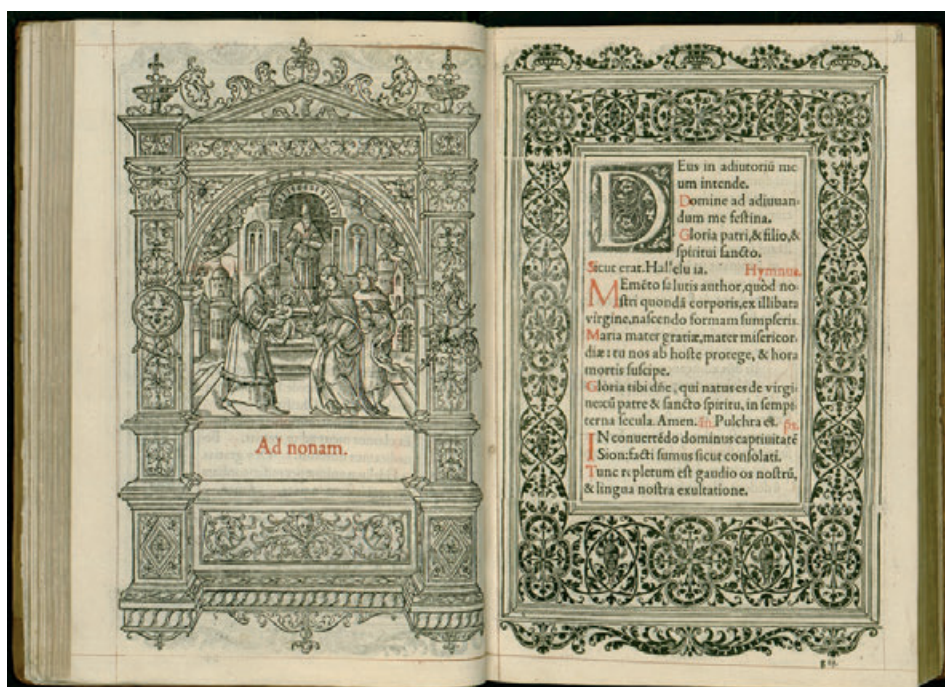 Ad nonam.
DEus in adiutoriū me
um intende.
Domine ad adiuuan-
dum me festina.
Gloria patri,& filio,&
spiritui sancto.
Sicut erat. Hallelu ia. Hymnus.
MEmēto salutis author,quòd no-
stri quondā corporis,ex illibata
virgine,nascendo formam sumpseris.
Maria mater gratiæ,mater misericor-
diæ: tu nos ab hoste protege, & hora
mortis suscipe.
Gloria tibi dñe, qui natus es de virgi-
ne:cū patre & sancto spiritu, in sempi-
terna secula. Amen. Pulchra es. ps.
IN conuertēdo dominus captiuitatē
Sion:facti sumus sicut consolati.
Tunc repletum est gaudio os nostrū,
& lingua nostra exultatione.